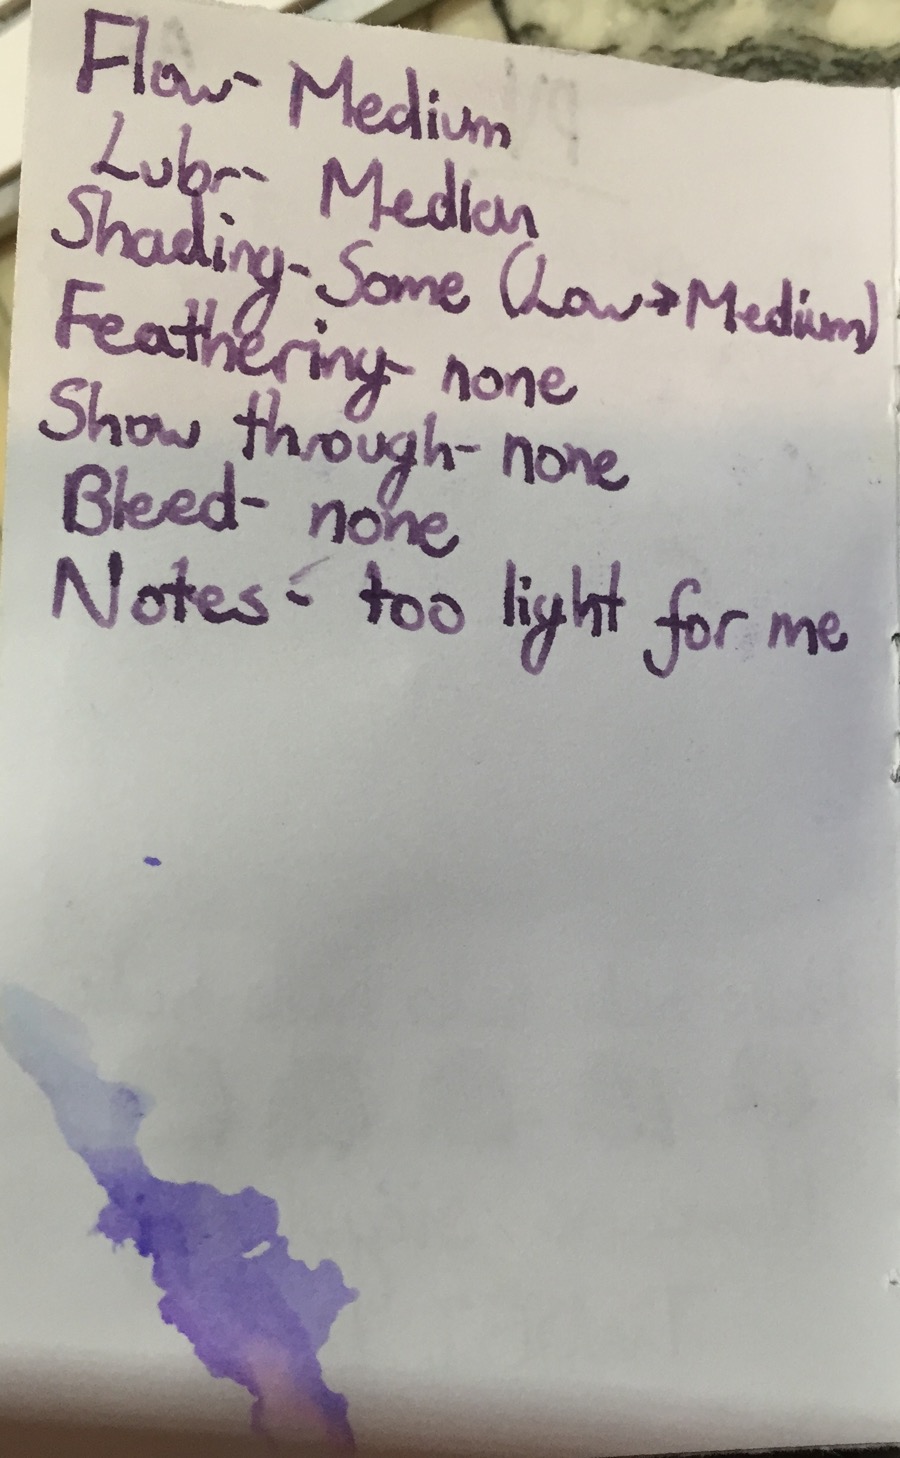 Flow- Medium
Lubr- Median
Shading- Some (Low→Medium)
Feathering- none
Show through- none
Bleed- none
Notes- too light for me